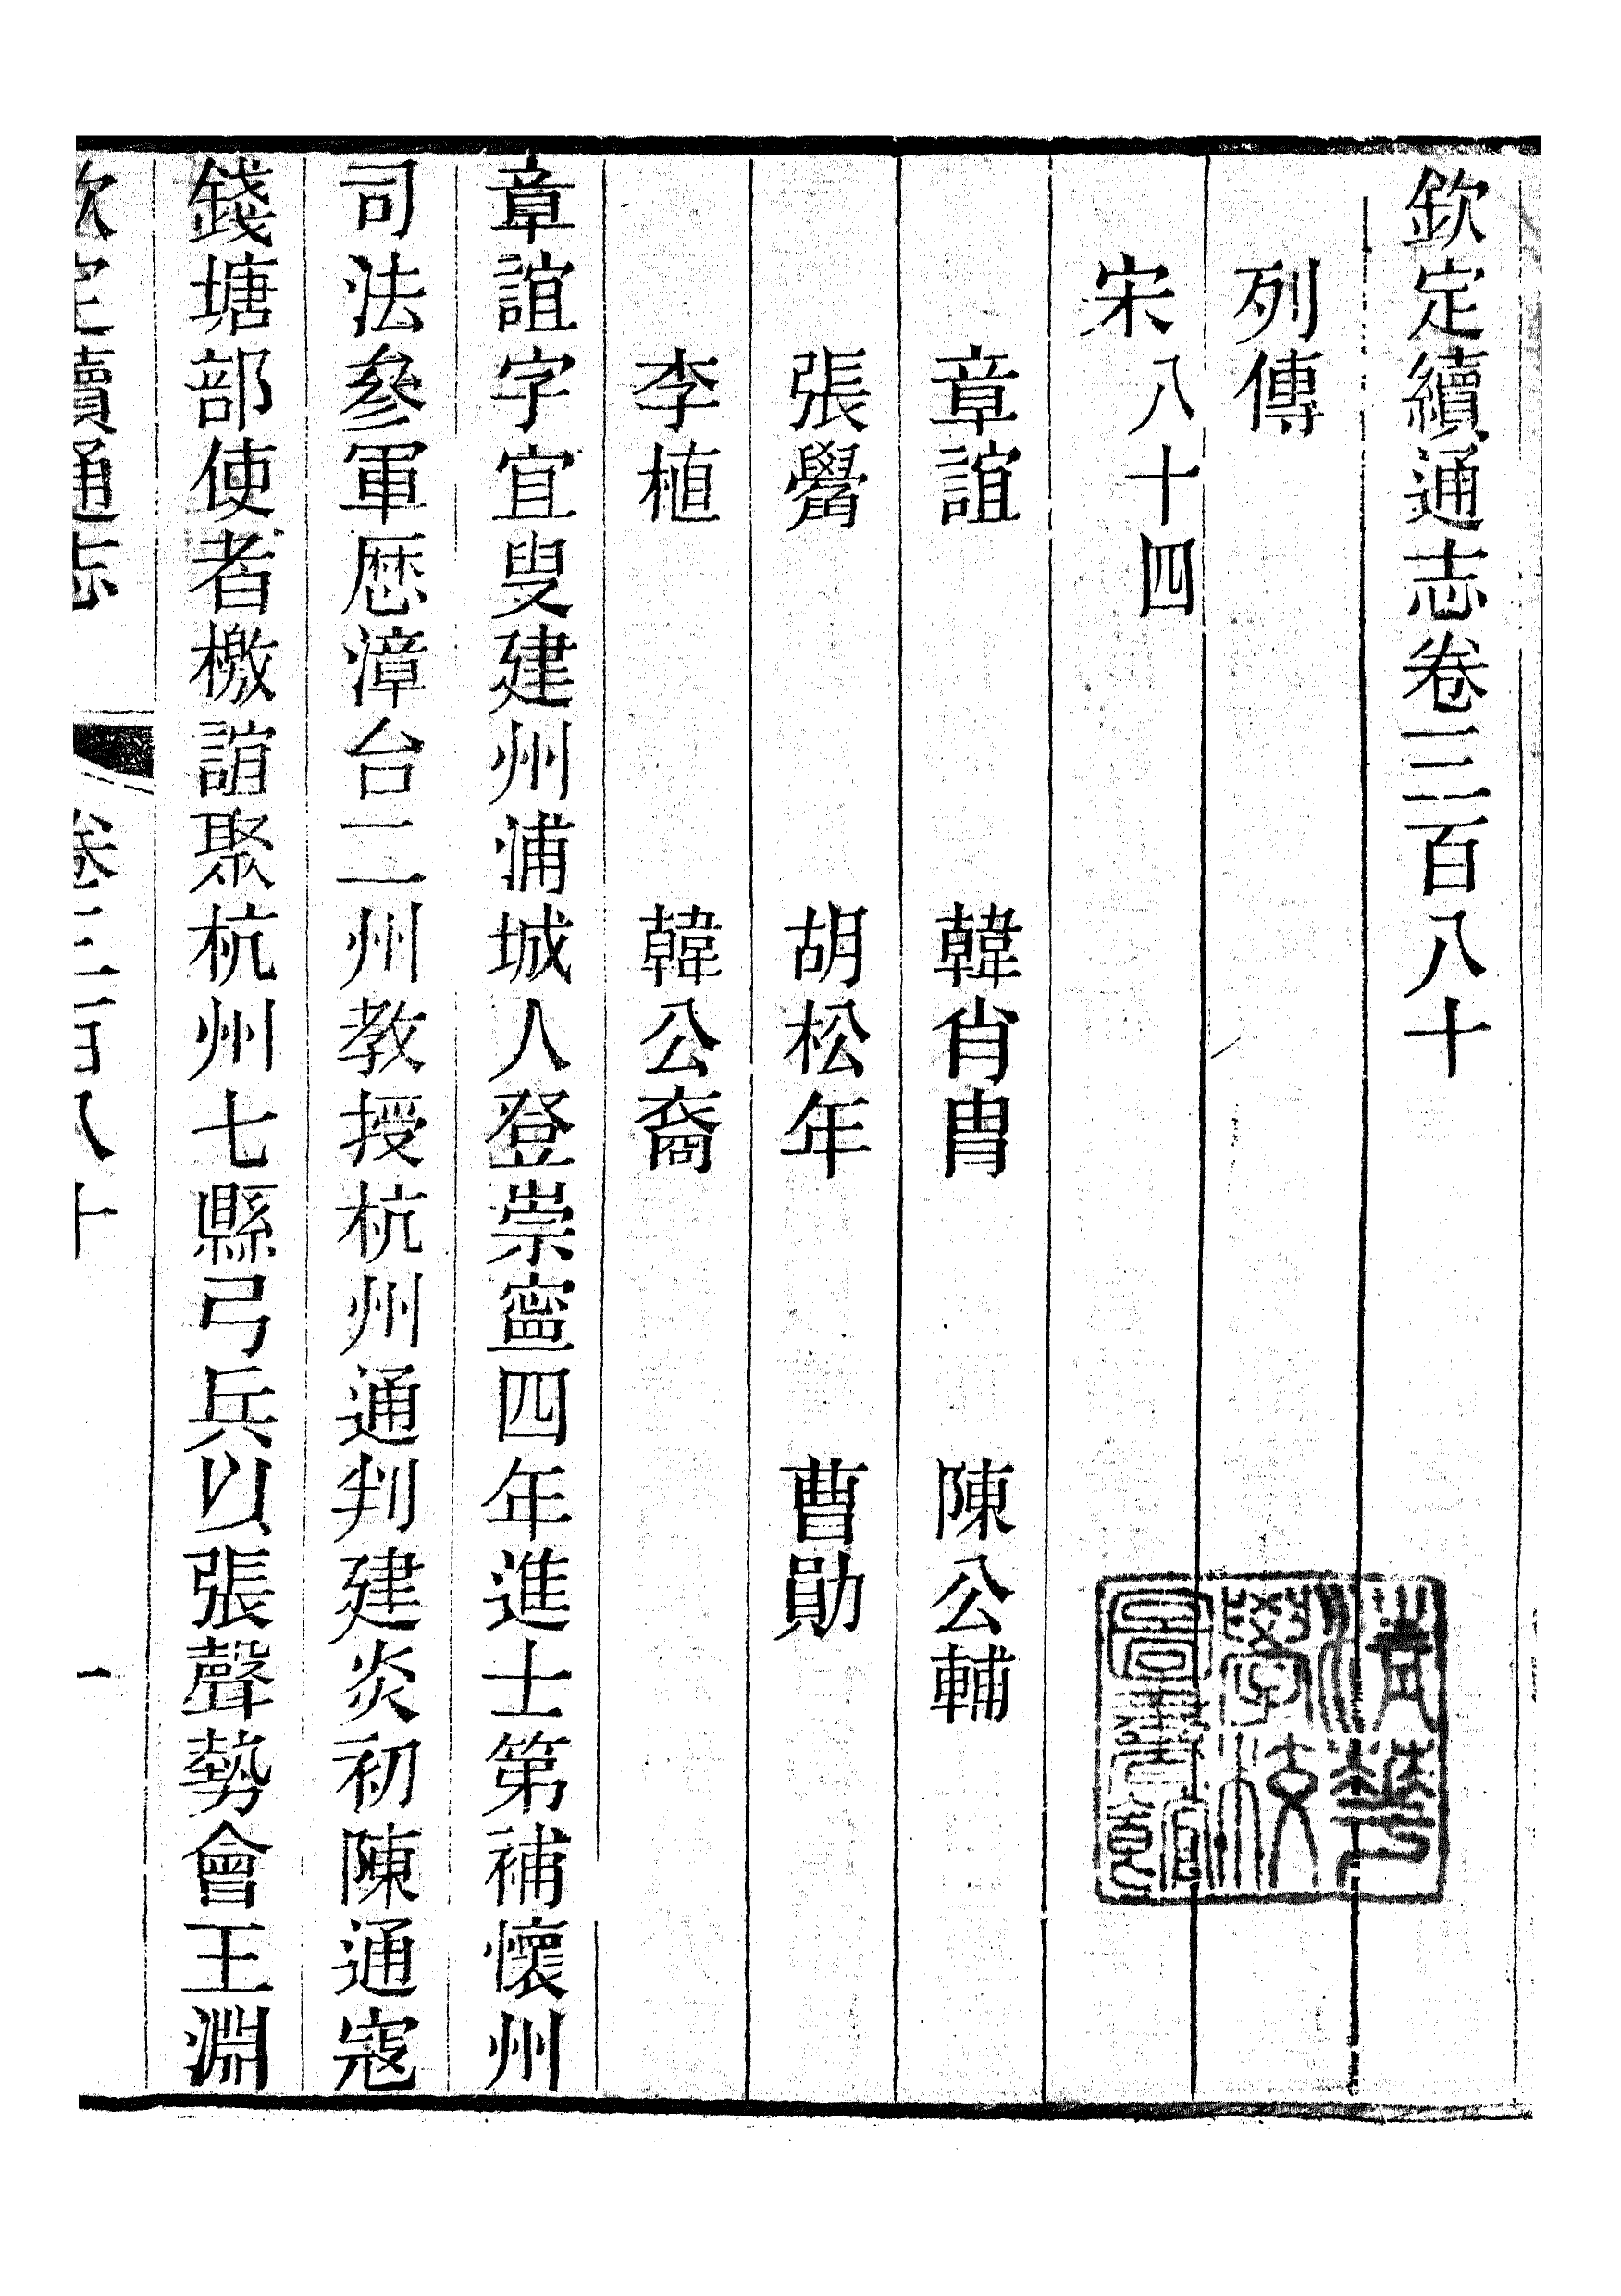 欽定續通志卷三百八十
列傳
宋八十四
章誼　韓肖胄　陳公輔
張觷　胡松年　曹勛
李植　韓公裔
章誼字宜叟建州浦城人登崇寧四年進士第補懷州
司法參軍歴漳台二州教授杭州通判建炎初陳通寇
錢塘部使者檄誼聚杭州七縣弓兵以張聲勢會王淵
欽定續通志　卷三百八十　一
清華
學校
圖書館